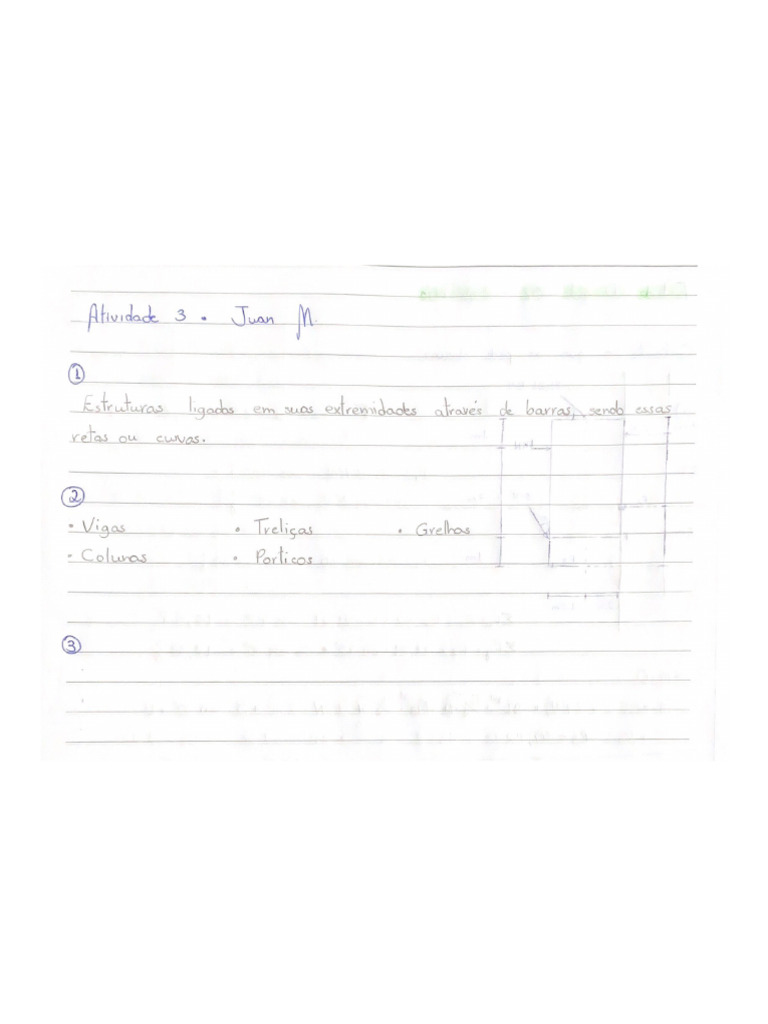 Atividade 3 • Juan M.
1
Estruturas ligadas em suas extremidades através de barras, sendo essas
retas ou curvas.
2
• Vigas • Treliças • Grelhas
• Colunas • Porticos
3